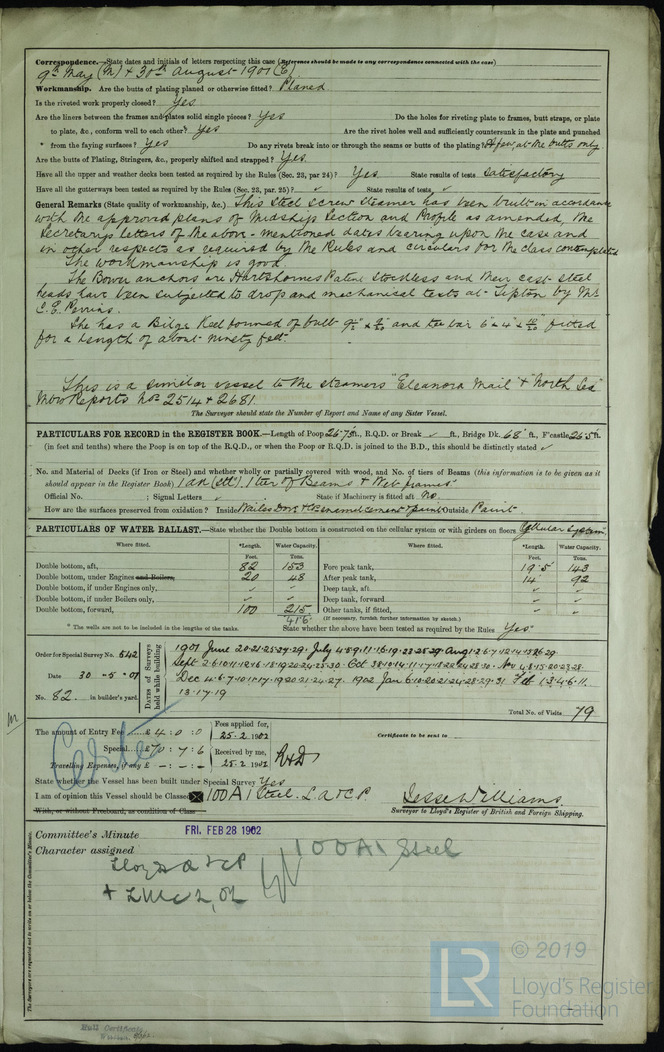 Correspondence.—State dates and initials of letters respecting this case (Reference should be made to any correspondence connected with the case)
9th May (M) & 30th August 1901 (E)
Workmanship. Are the butts of plating planed or otherwise fitted? Planed
Is the riveted work properly closed? Yes
Are the liners between the frames and plates solid single pieces? Yes Do the holes for riveting plate to frames, butt straps, or plate
to plate, &c., conform well to each other? Yes Are the rivet holes well and sufficiently countersunk in the plate and punched
from the faying surfaces? Yes Do any rivets break into or through the seams or butts of the plating? A few, at the butts only
Are the butts of Plating, Stringers, &c., properly shifted and strapped? Yes.
Have all the upper and weather decks been tested as required by the Rules (Sec. 23, par 24)? Yes. State results of tests Satisfactory
Have all the gutterways been tested as required by the Rules (Sec. 23, par. 25)? ✓ State results of tests ✓
General Remarks (State quality of workmanship, &c.) This steel screw steamer has been built in accordance
with the approved plans of Midship Section and Profile as amended, the
Secretary's letters of the above-mentioned dates bearing upon the case and
in other respects as required by the Rules and circulars for the class contemplated
The workmanship is good.
The Bower anchors are Hartshornes Patent Stockless and their cast steel
heads have been subjected to drop and mechanical tests at Tipton by Mr
C. E. Perrins.
She has a Bilge Keel formed of bulb and tee bar fitted
for a length of about ninety feet.
This is a similar vessel to the steamers "Eleanora Mail" & "North Sea"
Mbro Reports Nos 2514 & 2681.
The Surveyor should state the Number of Report and Name of any Sister Vessel.
PARTICULARS FOR RECORD in the REGISTER BOOK.—Length of Poop 26.75 ft., R.Q.D. or Break ✓ ft., Bridge Dk. 68 ft., F'castle 26.5 ft.
(in feet and tenths) where the Poop is on top of the R.Q.D., or when the Poop or R.Q.D. is joined to the B.D., this should be distinctly stated ✓
No. and Material of Decks (if Iron or Steel) and whether wholly or partially covered with wood, and No. of tiers of Beams (this information is to be given as it
should appear in the Register Book) 1 dk (stl) 1 tier of Beams & Web frames
Official No. ; Signal Letters ✓ State if Machinery is fitted aft No.
How are the surfaces preserved from oxidation? Inside cement & paint Outside Paint.
PARTICULARS OF WATER BALLAST.—State whether the Double bottom is constructed on the cellular system or with girders on floors Cellular System
Where fitted. *Length. Water Capacity. Where fitted. *Length. Water Capacity.
Feet. Tons. Feet. Tons.
Double bottom, aft, 82 153 Fore peak tank, 19.5 143
Double bottom, under Engines and Boilers, 20 48 After peak tank, 14 92
Double bottom, if under Engines only, ✓ ✓ Deep tank, aft, ✓ ✓
Double bottom, if under Boilers only, ✓ ✓ Deep tank, forward, ✓ ✓
Double bottom, forward, 100 215 Other tanks, if fitted, ✓ ✓
416 (If necessary, furnish further information by sketch.)
* The wells are not to be included in the lengths of the tanks. State whether the above have been tested as required by the Rules Yes.
Order for Special Survey No. 542
Date 30-5-01
No. 82 in builder's yard.
DATES of Surveys held while building
1901 June 20.21.25.27.29. July 4.8.9.11.16.19.23.25.29. Aug 1.2.6.7.12.14.15.26.29.
Dec 4.6.7.10.11.17.19.20.21.24.27. 1902 Jan 6.10.20.21.24.28.29.31 Feb 1.3.4.6.11.
13.17.19
Total No. of Visits 79
The amount of Entry Fee £ 4 : 0 : 0 Fees applied for, 25.2.1902 Certificate to be sent to
Special £ 70 : 7 : 6 Received by me,
Travelling Expenses, if any £ - : - : - 25.2.1902
State whether the Vessel has been built under Special Survey Yes
I am of opinion this Vessel should be Classed 100A1 Steel. L.A & C.P. Jesse Williams.
With, or without Freeboard, as condition of Class Surveyor to Lloyd's Register of British and Foreign Shipping.
Committee's Minute FRI. FEB 28 1902
Character assigned 100A1 Steel
Lloyds A & CP
+ LMC 2,02
The Surveyors are requested not to write on or below the Committee's Minute.
Hull Certificate
© 2019
LR
Lloyd's Register
Foundation